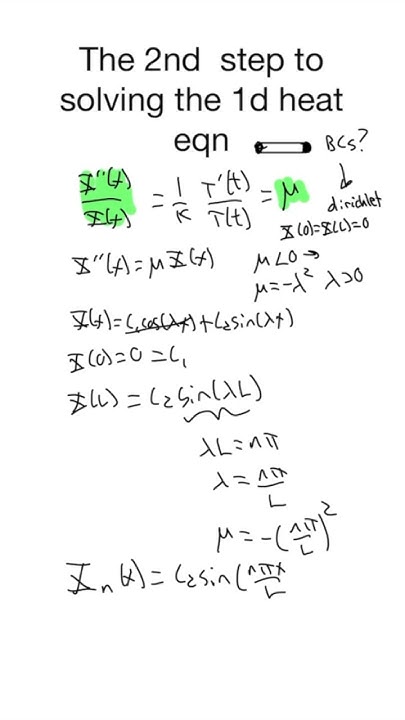 The 2nd step to
solving the 1d heat
eqn
BCs?
X''(x)/X(x) = 1/K T'(t)/T(t) = μ
dirichlet
X(0)=X(L)=0
X''(x)=μX(x)
μ<0 →
μ=-λ² λ>0
X(x)=C₁cos(λx)+C₂sin(λx)
X(0)=0=C₁
X(L)=C₂sin(λL)
λL=nπ
λ=nπ/L
μ=-(nπ/L)²
Xₙ(x)=C₂sin(nπx/L